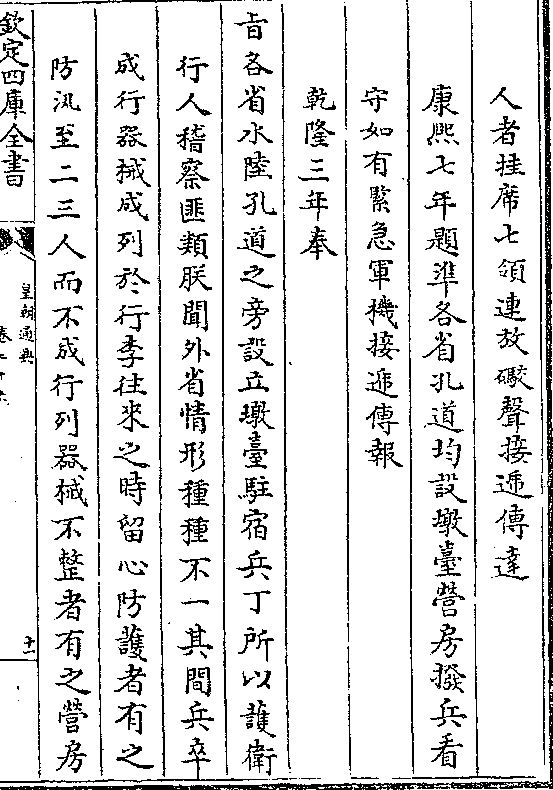 人者挂席七領連放礮聲接遞傳達
康熙七年題準各省孔道均設墩臺營房撥兵看
守如有緊急軍機接遞傳報
乾隆三年奉
旨各省水陸孔道之旁設立墩臺駐宿兵丁所以護衛
行人稽察匪類朕聞外省情形種種不一其間兵卒
成行器械成列於行李往來之時留心防護者有之
防汛至二三人而不成行列器械不整者有之營房
欽定四庫全書
皇朝通典
十一